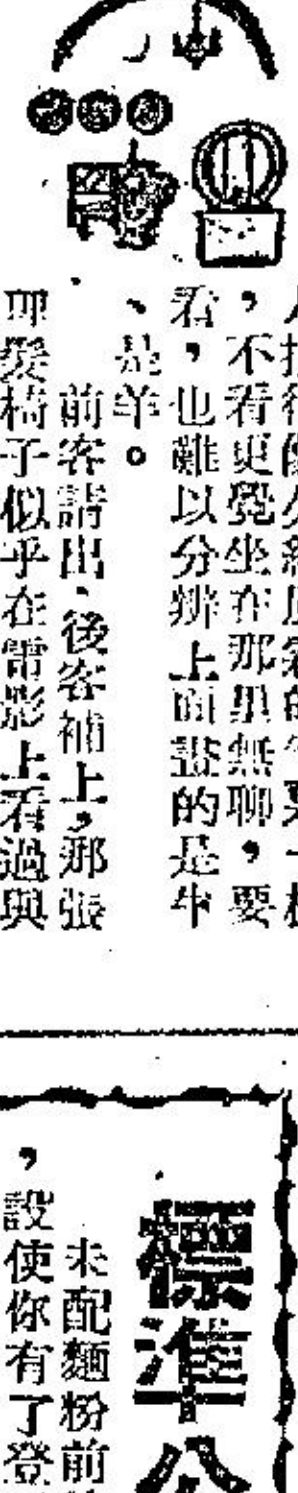 ，不看更覺坐在那里無聊，要
看，也難以分辨上面畫的是牛
、是羊。
前客請出、後客補上，那張
理髮椅子似乎在電影上看過與
標準
未配麵粉前
，設使你有了登